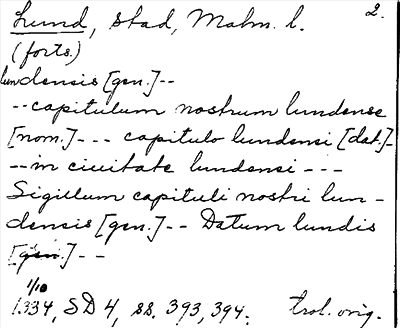 Lund, stad, Malm. l. 2.
(forts.)
lundensis [gen.]--
--capitulum nostrum lundense
[nom.]--- capitulo lundensi [dat.]-
--in ciuitate lundensi ---
Sigillum capituli nostri lun-
densis [gen.]-- Datum lundis
[gen.]--
1/10
1334, SD 4, ss. 393, 394. trol. orig.